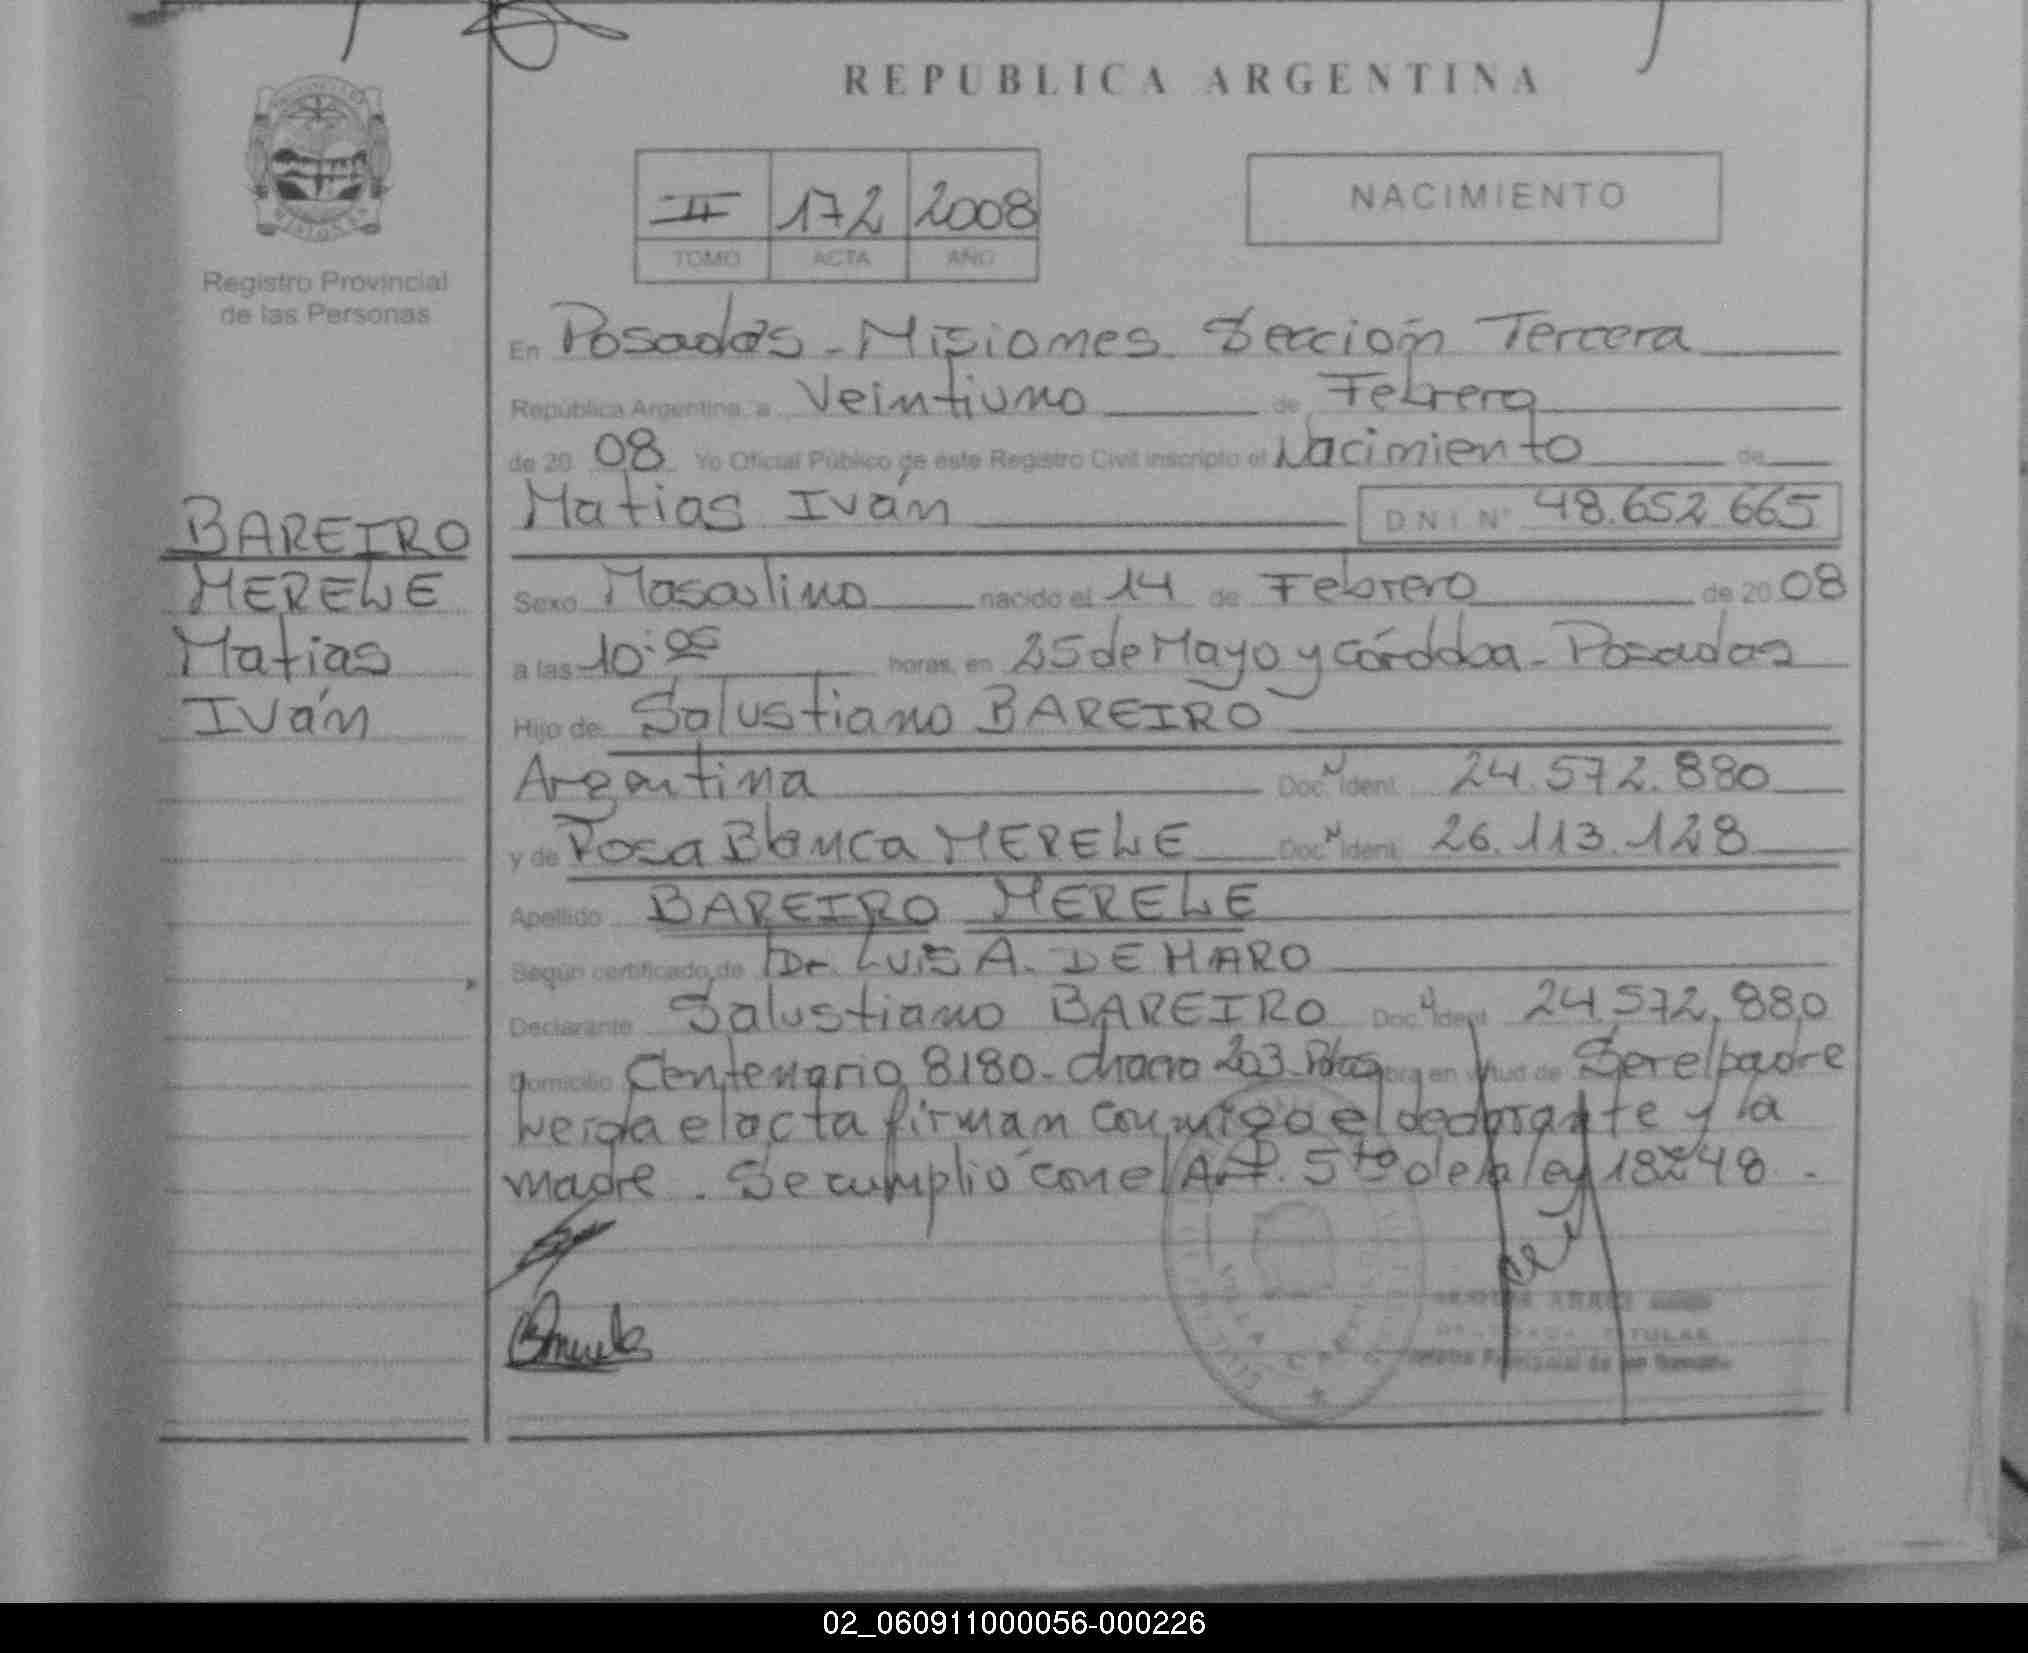 REPUBLICA ARGENTINA
II 172 2008
TOMO ACTA AÑO
NACIMIENTO
Registro Provincial
de las Personas
BAREIRO
MERELE
Matias
Iván
En Posadas - Misiones Sección Tercera
República Argentina, a Veintiuno de Febrero
de 20 08 Yo Oficial Público de este Registro Civil inscripto el Nacimiento de
Matias Iván D N I N° 48.652 665
Sexo Masculino nacido el 14 de Febrero de 20 08
a las 10:05 horas, en 25 de Mayo y Córdoba - Posadas
Hijo de Salustiano BAREIRO
Argentina Doc. N Ident. 24.572.880
y de Rosa Blanca MERELE Doc. N Ident. 26.113.128
Apellido BAREIRO MERELE
Según certificado de Dr. LUIS A. DE HARO
Declarante Salustiano BAREIRO Doc. Ident 24.572.880
Domicilio Centenario 8180 - chacra 203 - Pdas obra en virtud de Ser el padre
Leída el acta firman conmigo el declarante y la
madre. Se cumplió con el Art. 5to de la ley 18248.
TITULAR
02_060911000056-000226